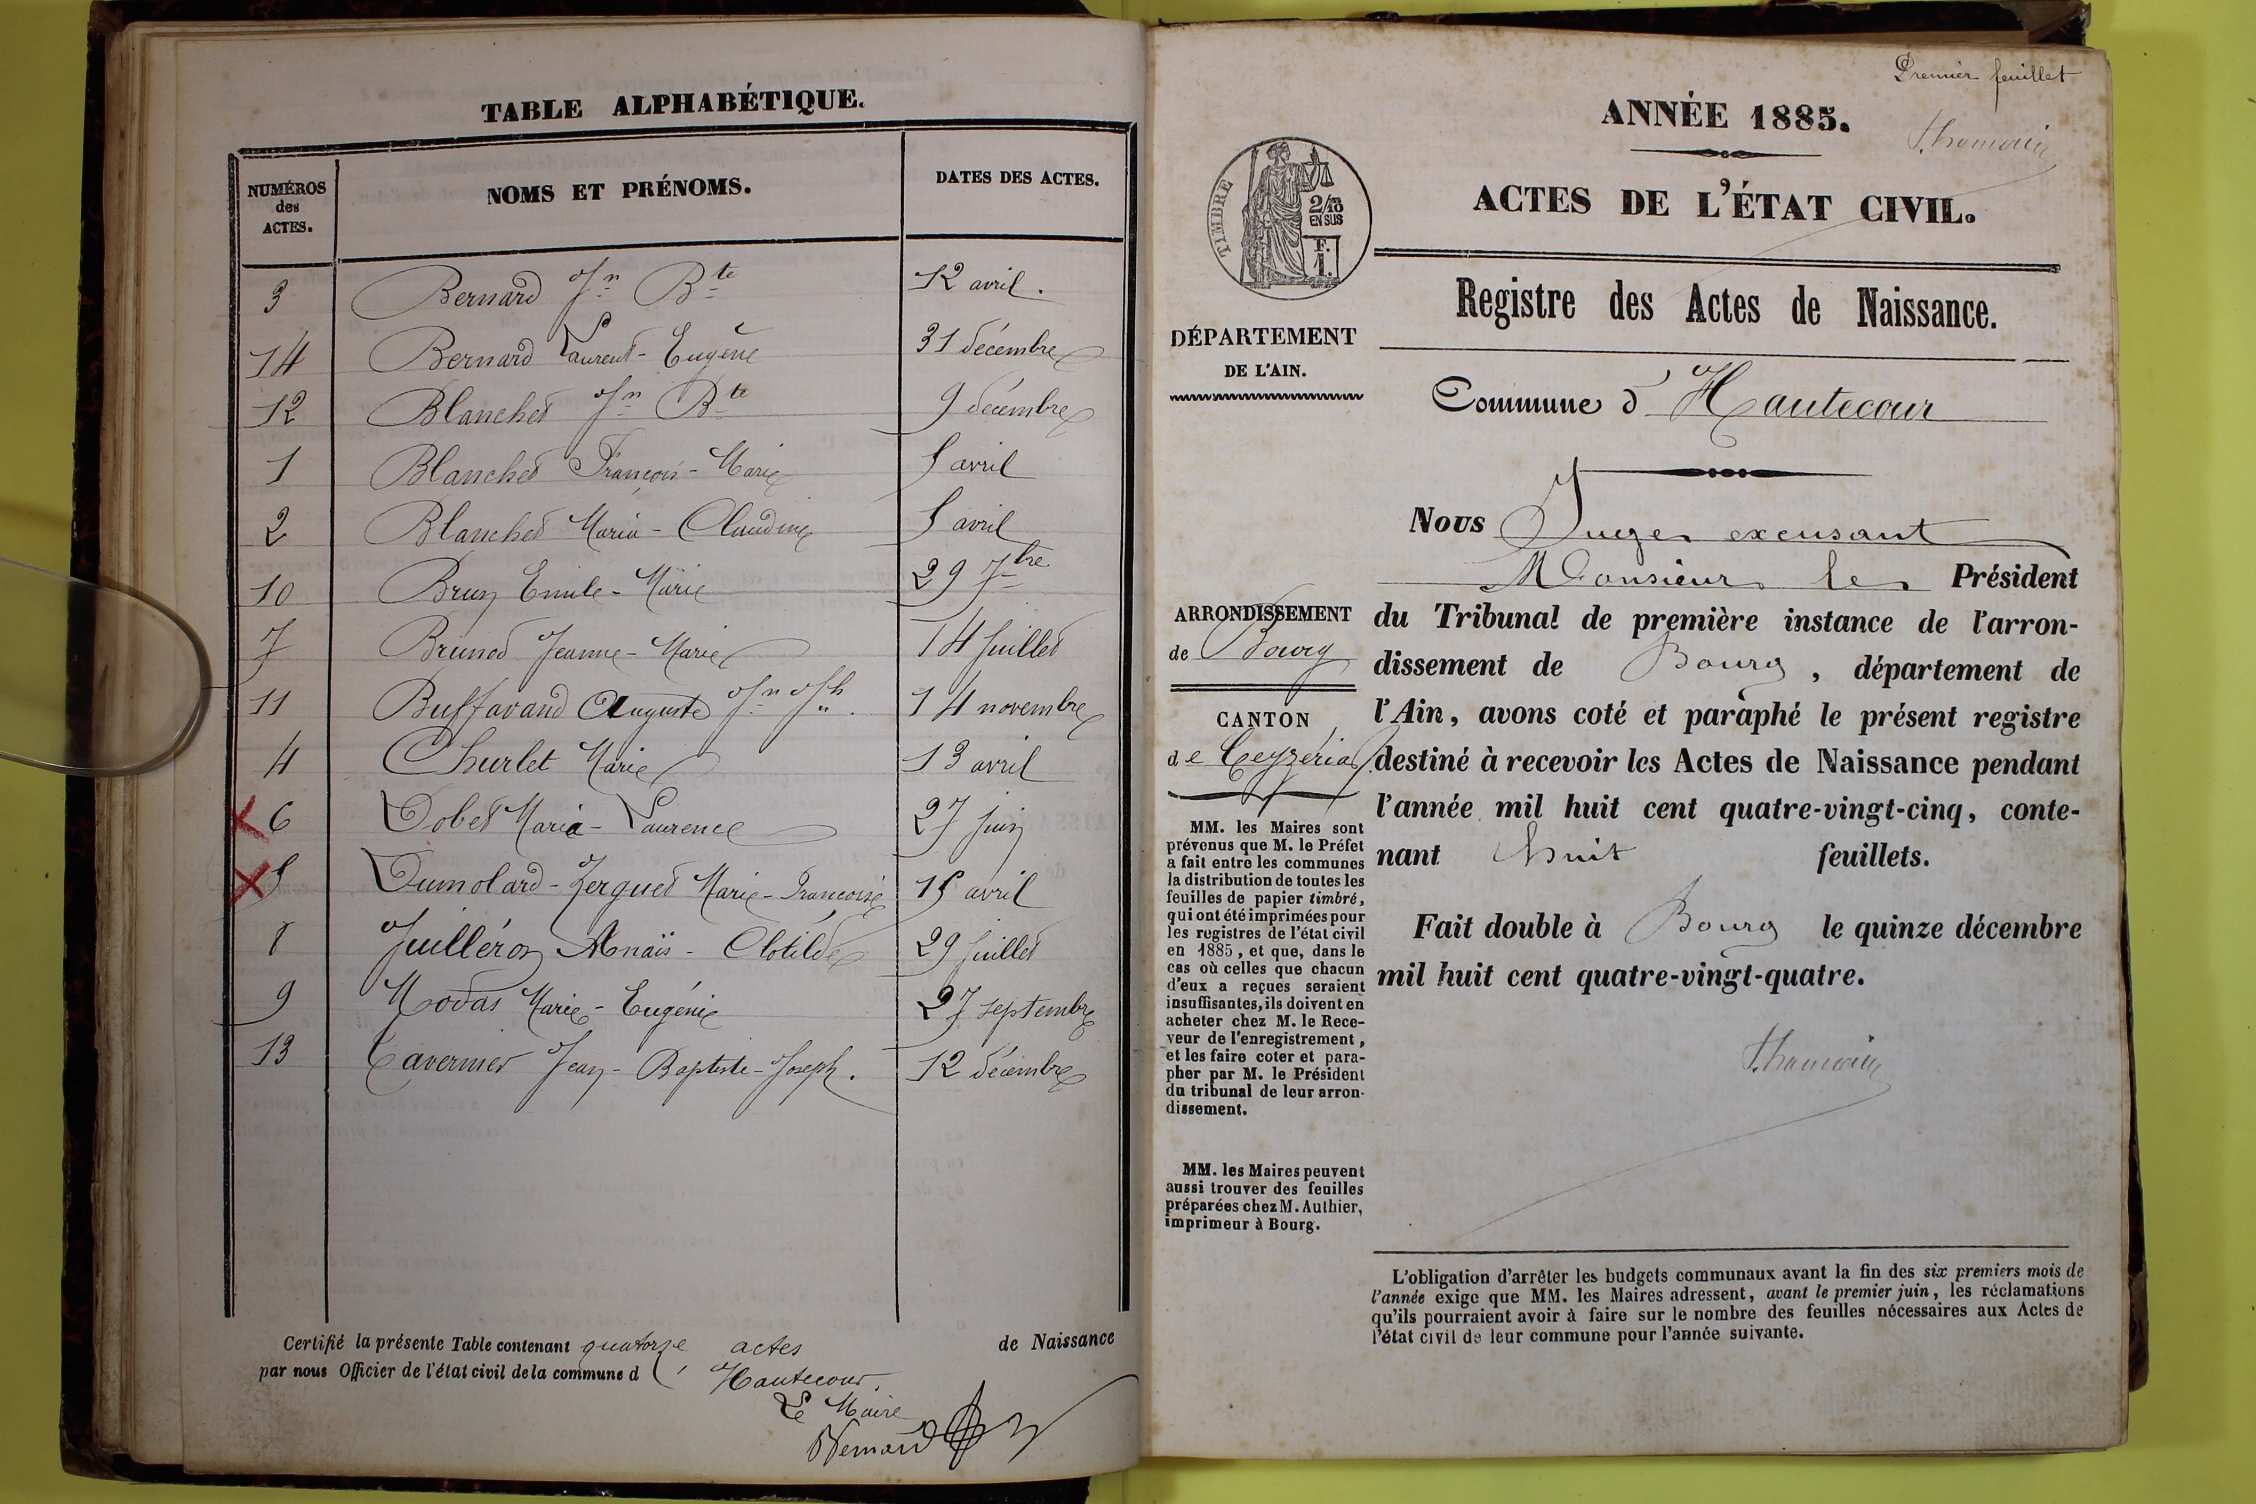 TABLE ALPHABÉTIQUE.
NUMÉROS des ACTES. NOMS ET PRÉNOMS. DATES DES ACTES.
3 Bernard Jn Bte 12 avril.
14 Bernard Laurent-Eugène 31 décembre
12 Blanchet Jn Bte 9 décembre
1 Blanchet François-Marie 5 avril
2 Blanchet Maria-Claudine 5 avril
10 Brun Emile-Marie 29 7bre
7 Brunet Jeanne-Marie 14 Juillet
11 Buffavand Auguste Jn Jh. 14 novembre
4 Churlet Marie 13 avril
6 Dobet Maria-Laurence 27 juin
5 Dumolard-Zerguet Marie-Françoise 15 avril
8 Juilléron Anaïs-Clotilde 29 Juillet
9 Modas Marie-Eugénie 27 septembre
13 Tavernier Jean-Baptiste-Joseph. 12 décembre
Certifié la présente Table contenant quatorze actes de Naissance
par nous Officier de l'état civil de la commune d' Hautecour.
Le Maire
Bernard
Premier feuillet
ANNÉE 1885.
ACTES DE L'ÉTAT CIVIL.
TIMBRE
2/10
EN SUS
F.
1.
Registre des Actes de Naissance.
DÉPARTEMENT
DE L'AIN.
Commune d'Hautecour
Nous Juge excusant
Monsieur le Président
du Tribunal de première instance de l'arron-
dissement de Bourg, département de
l'Ain, avons coté et paraphé le présent registre
destiné à recevoir les Actes de Naissance pendant
l'année mil huit cent quatre-vingt-cinq, conte-
nant huit feuillets.
Fait double à Bourg le quinze décembre
mil huit cent quatre-vingt-quatre.
ARRONDISSEMENT
de Bourg
CANTON
de Ceyzériat
MM. les Maires sont
prévenus que M. le Préfet
a fait entre les communes
la distribution de toutes les
feuilles de papier timbré,
qui ont été imprimées pour
les registres de l'état civil
en 1885, et que, dans le
cas où celles que chacun
d'eux a reçues seraient
insuffisantes, ils doivent en
acheter chez M. le Rece-
veur de l'enregistrement,
et les faire coter et para-
pher par M. le Président
du tribunal de leur arron-
dissement.
MM. les Maires peuvent
aussi trouver des feuilles
préparées chez M. Authier,
imprimeur à Bourg.
L'obligation d'arrêter les budgets communaux avant la fin des six premiers mois de
l'année exige que MM. les Maires adressent, avant le premier juin, les réclamations
qu'ils pourraient avoir à faire sur le nombre des feuilles nécessaires aux Actes de
l'état civil de leur commune pour l'année suivante.